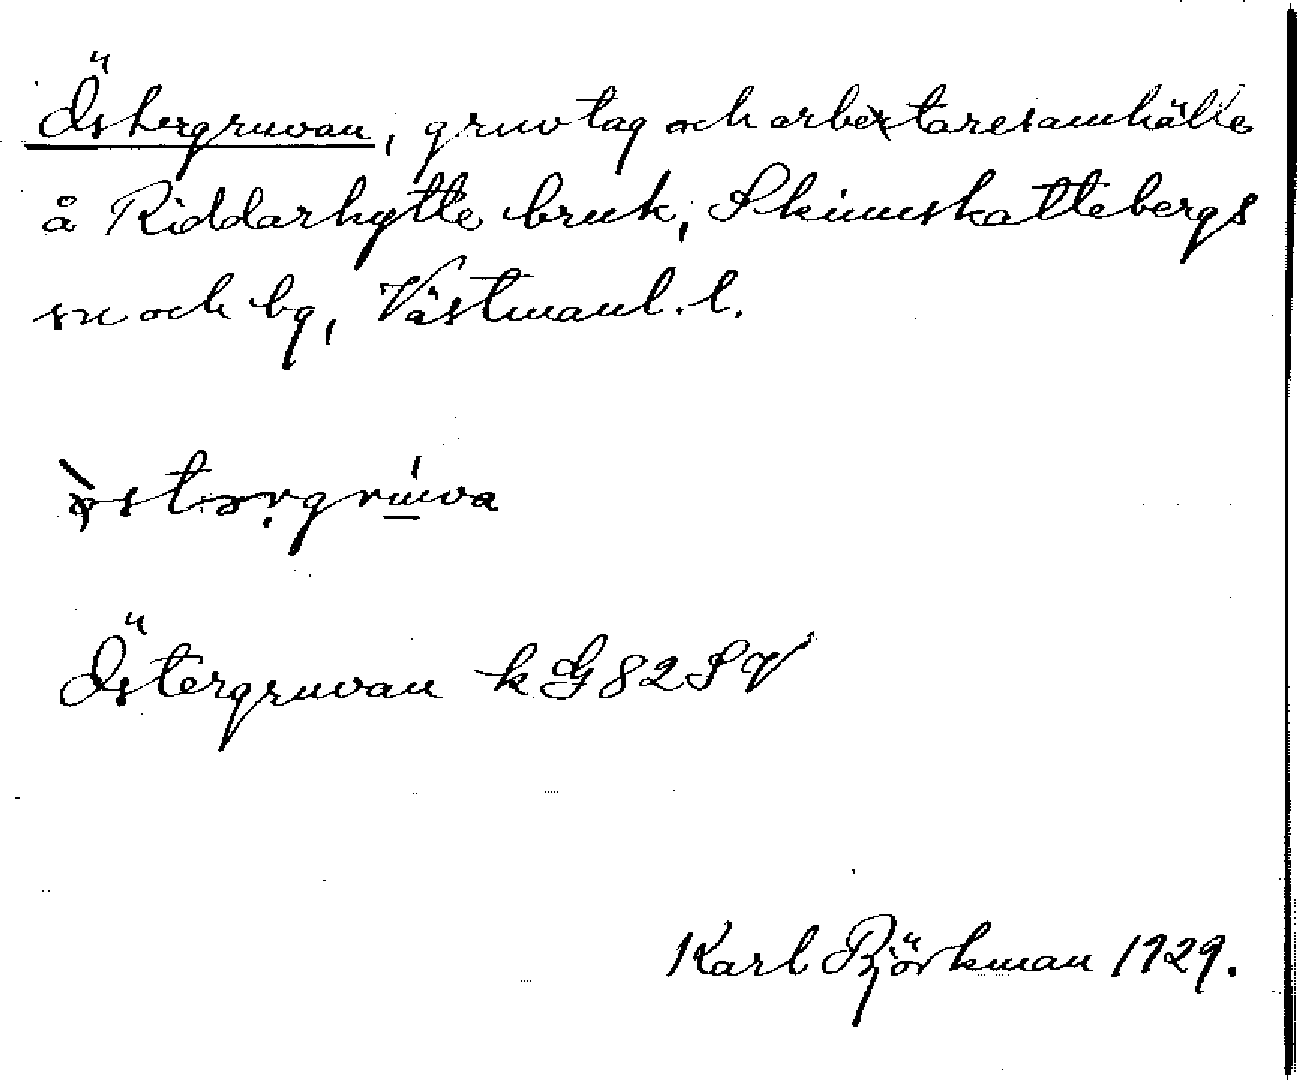 Östergruvan, gruvtag och arbetaresamhälle
å Riddarhytte bruk, Skinnskattebergs
sn och bg, Västmanl. l.
Östergruvan k G 82 S V
Karl Björkman 1929.